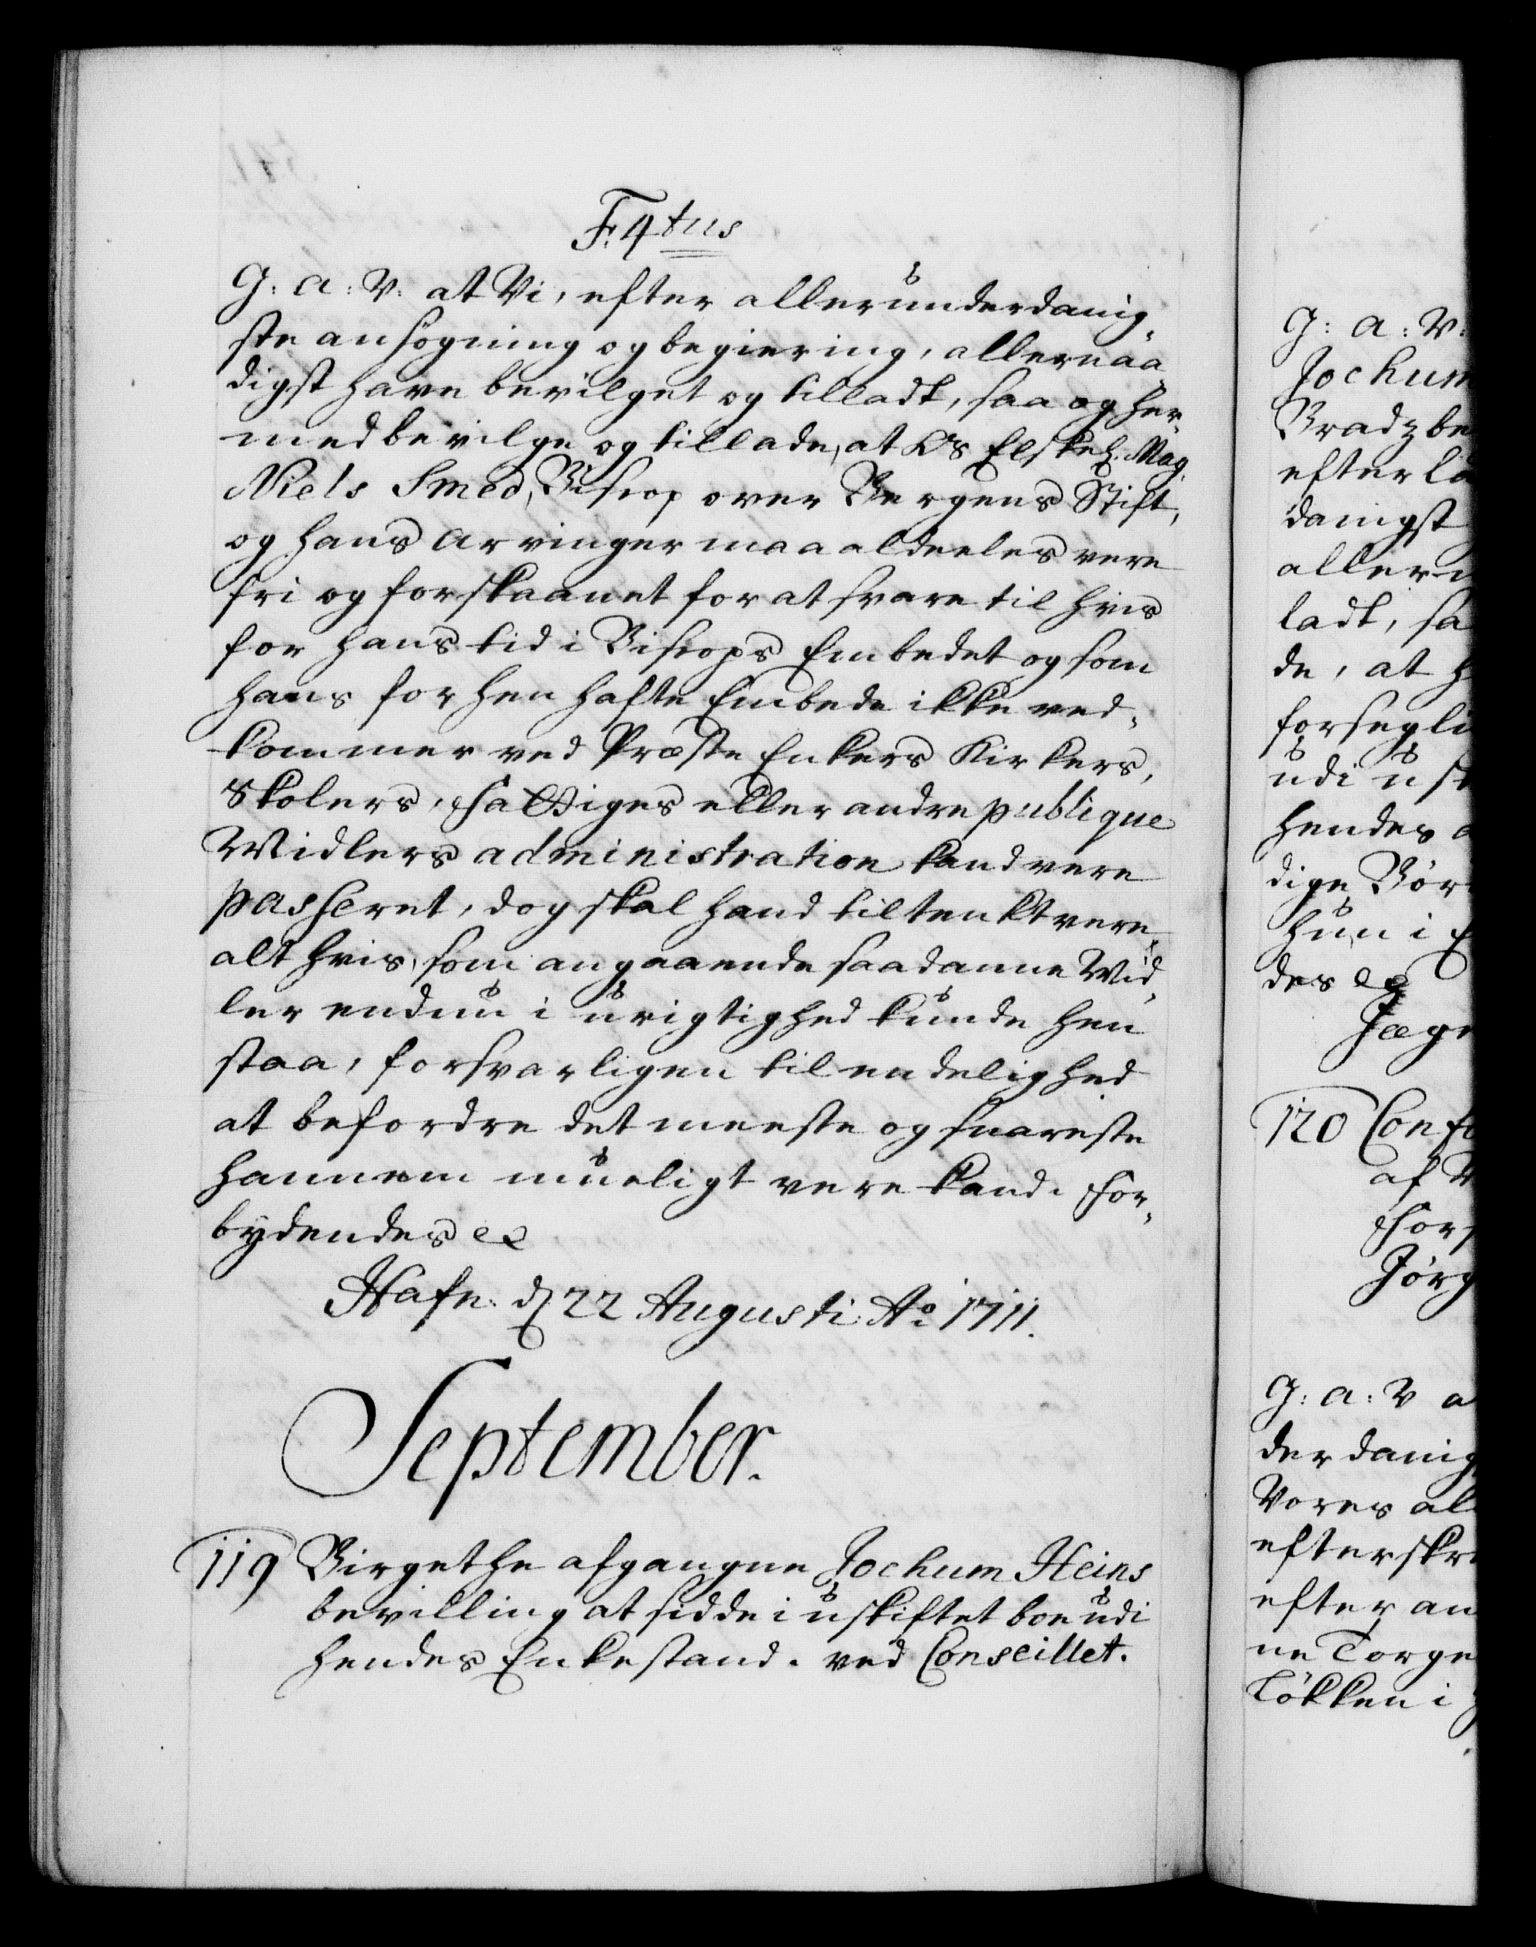 F: 4tus
G: a: V: at Vi, efter allerunderdanig-
ste ansøgning og begiering, allernaa
digst have bevilget og tilladt, saa og her-
med bevilge og tillade, at Os Elskel. Mag.
Niels Smed, Biscop over Bergens Stift,
og hans Arvinger maa aldeeles vere
fri og forskaanet for at svare til hvis
for hans tid i Biscops Embedet og som
hans forhen hafte Embede ikke ved-
kommer ved Præste Enkers Kirkers,
Skolers, Fattiges eller andre publique
Midlers administration kand vere
passeret, dog skal hand tiltenkt vere
alt hvis, som angaaende saadanne Mid-
ler endnu i urigtighed kunde hen
staa, forsvarligen til endelighed
at befordre det meeste og snareste
hannem mueligt vere kand. For-
bydendes etc
Hafn: d 22 Augusti Ao 1711.
September.
119 Birgethe afgangne Jochum Heins
bevilling at sidde i uskiftet boe udi
hendes Enkestand. ved Conseillet.
G: a: V:
Jochum
Bradzbe
efterla
danigst
allern
ladt, sa
de, at h
forsegli
udi usk
hendes
dige Bør
hun i E
des etc
Jæge
120 Conf
af
Fors
Jørg
G: a: V a
derdanig
Vores al
efterskre
efter an
ne Torge
Løkken i